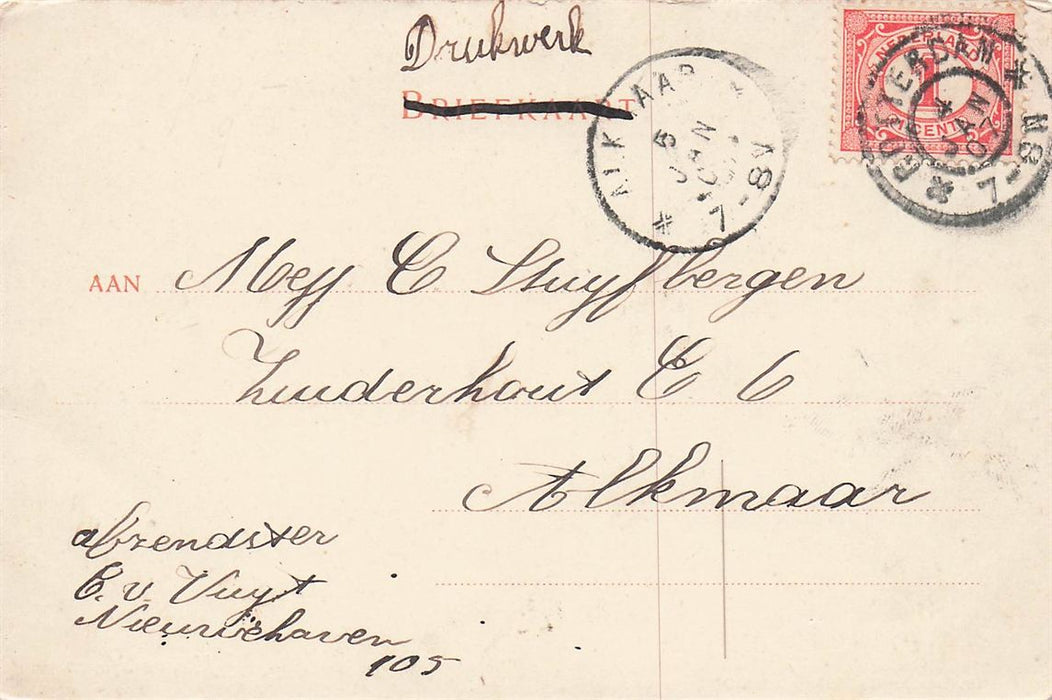 Drukwerk
BRIEFKAART
NEDERLAND
1
CENT
ROTTERDAM
4
JAN
07
7-8N
ALKMAAR
5
JAN
7-8V
AAN Mej C Stuyfbergen
Zuiderhout C 6
Alkmaar
afzendster
C. v. Vuyt
Nieuwehaven
105